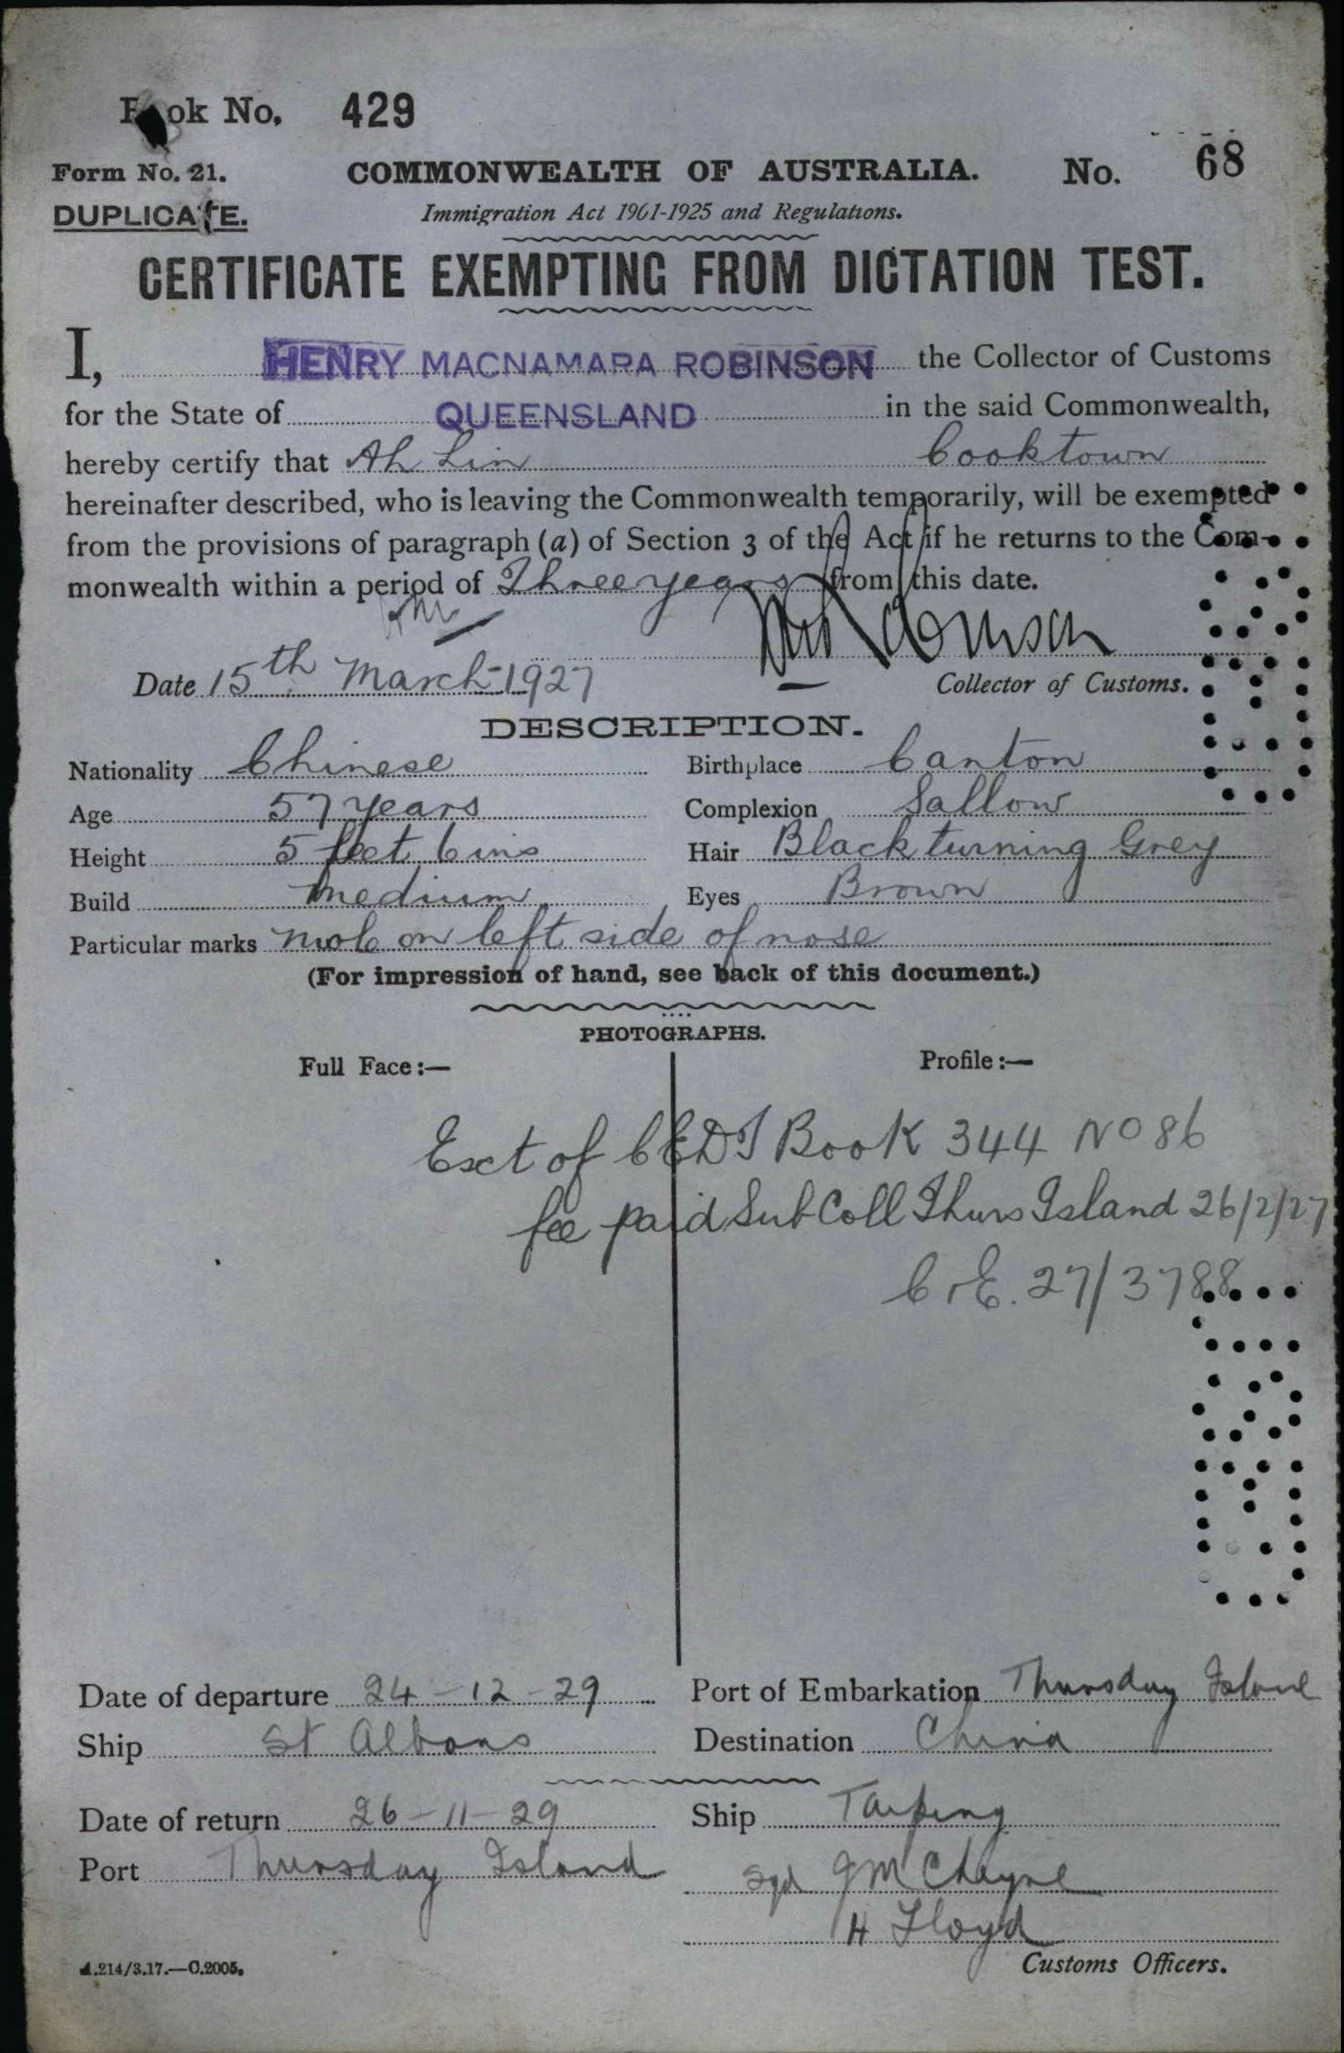 Book No. 429
Form No. 21. COMMONWEALTH OF AUSTRALIA. No. 68
DUPLICATE. Immigration Act 1901-1925 and Regulations.
CERTIFICATE EXEMPTING FROM DICTATION TEST.
I, HENRY MACNAMARA ROBINSON the Collector of Customs
for the State of QUEENSLAND in the said Commonwealth,
hereby certify that Ah Lin Cooktown
hereinafter described, who is leaving the Commonwealth temporarily, will be exempted
from the provisions of paragraph (a) of Section 3 of the Act if he returns to the Com-
monwealth within a period of Three years from this date.
Date 15th March 1927 Collector of Customs.
DESCRIPTION.
Nationality Chinese Birthplace Canton
Age 57 years Complexion Sallow
Height 5 feet 6 ins Hair Black turning Grey
Build Medium Eyes Brown
Particular marks mole on left side of nose
(For impression of hand, see back of this document.)
PHOTOGRAPHS.
Full Face:— Profile:—
Ext of CEDT Book 344 No 86
fee paid Sub Coll Thurs Island 26/2/27
C & E. 27/3788
Date of departure 24-12-29 Port of Embarkation Thursday Island
Ship St Albans Destination China
Date of return 26-11-29 Ship Taiping
Port Thursday Island Sgd J M Cheyne
H Lloyd
A.214/3.17.—C.2005. Customs Officers.